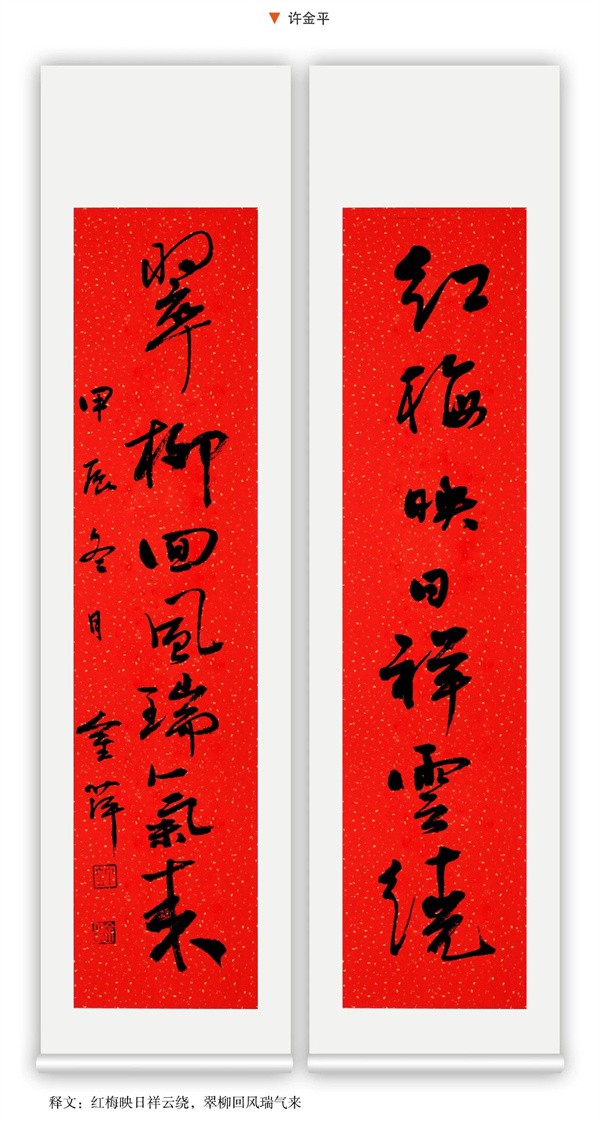 ▼ 许金平
紅梅映日祥雲繞
翠柳回風瑞氣来
甲辰冬月
金萍
释文：红梅映日祥云绕，翠柳回风瑞气来